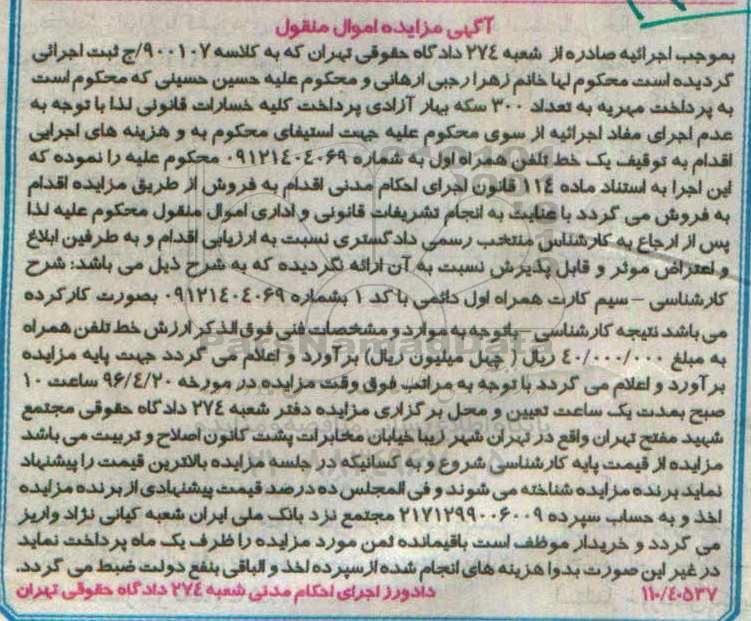 آگهی مزایده اموال منقول
بموجب اجرائیه صادره از شعبه ۲۷۴ دادگاه حقوقی تهران که به کلاسه ۹۰۰۱۰۷/ج ثبت اجرائی
گردیده است محکوم لها خانم زهرا رجبی ارهانی و محکوم علیه حسین حسینی که محکوم است
به پرداخت مهریه به تعداد ۳۰۰ سکه بهار آزادی پرداخت کلیه خسارات قانونی لذا با توجه به
عدم اجرای مفاد اجرائیه از سوی محکوم علیه جهت استیفای محکوم به و هزینه های اجرایی
اقدام به توقیف یک خط تلفن همراه اول به شماره ۰۹۱۲۱۴۰۴۰۶۹ محکوم علیه را نموده که
این اجرا به استناد ماده ۱۱۴ قانون اجرای احکام مدنی اقدام به فروش از طریق مزایده اقدام
به فروش می گردد با عنایت به انجام تشریفات قانونی و اداری اموال منقول محکوم علیه لذا
پس از ارجاع به کارشناس منتخب رسمی دادگستری نسبت به ارزیابی اقدام و به طرفین ابلاغ
و اعتراض موثر و قابل پذیرش نسبت به آن ارائه نگردیده که به شرح ذیل می باشد: شرح
کارشناسی – سیم کارت همراه اول دائمی با کد ۱ بشماره ۰۹۱۲۱۴۰۴۰۶۹ بصورت کارکرده
می باشد نتیجه کارشناسی – باتوجه به موارد و مشخصات فنی فوق الذکر ارزش خط تلفن همراه
به مبلغ ۴۰/۰۰۰/۰۰۰ ریال ( چهل میلیون ریال) برآورد و اعلام می گردد جهت پایه مزایده
برآورد و اعلام می گردد با توجه به مراتب فوق وقت مزایده در مورخه ۹۶/۴/۲۰ ساعت ۱۰
صبح بمدت یک ساعت تعیین و محل برگزاری مزایده دفتر شعبه ۲۷۴ دادگاه حقوقی مجتمع
شهید مفتح تهران واقع در تهران شهر زیبا خیابان مخابرات پشت کانون اصلاح و تربیت می باشد
مزایده از قیمت پایه کارشناسی شروع و به کسانیکه در جلسه مزایده بالاترین قیمت را پیشنهاد
نماید برنده مزایده شناخته می شوند و فی المجلس ده درصد قیمت پیشنهادی از برنده مزایده
اخذ و به حساب سپرده ۲۱۷۱۲۹۹۰۰۶۰۰۹ مجتمع نزد بانک ملی ایران شعبه کیانی نژاد واریز
می گردد و خریدار موظف است باقیمانده ثمن مورد مزایده را ظرف یک ماه پرداخت نماید
در غیر این صورت بدوا هزینه های انجام شده از سپرده اخذ و الباقی بنفع دولت ضبط می گردد.
۱۱۰/۴۰۵۳۷ دادورز اجرای احکام مدنی شعبه ۲۷۴ دادگاه حقوقی تهران
ParsNamadData